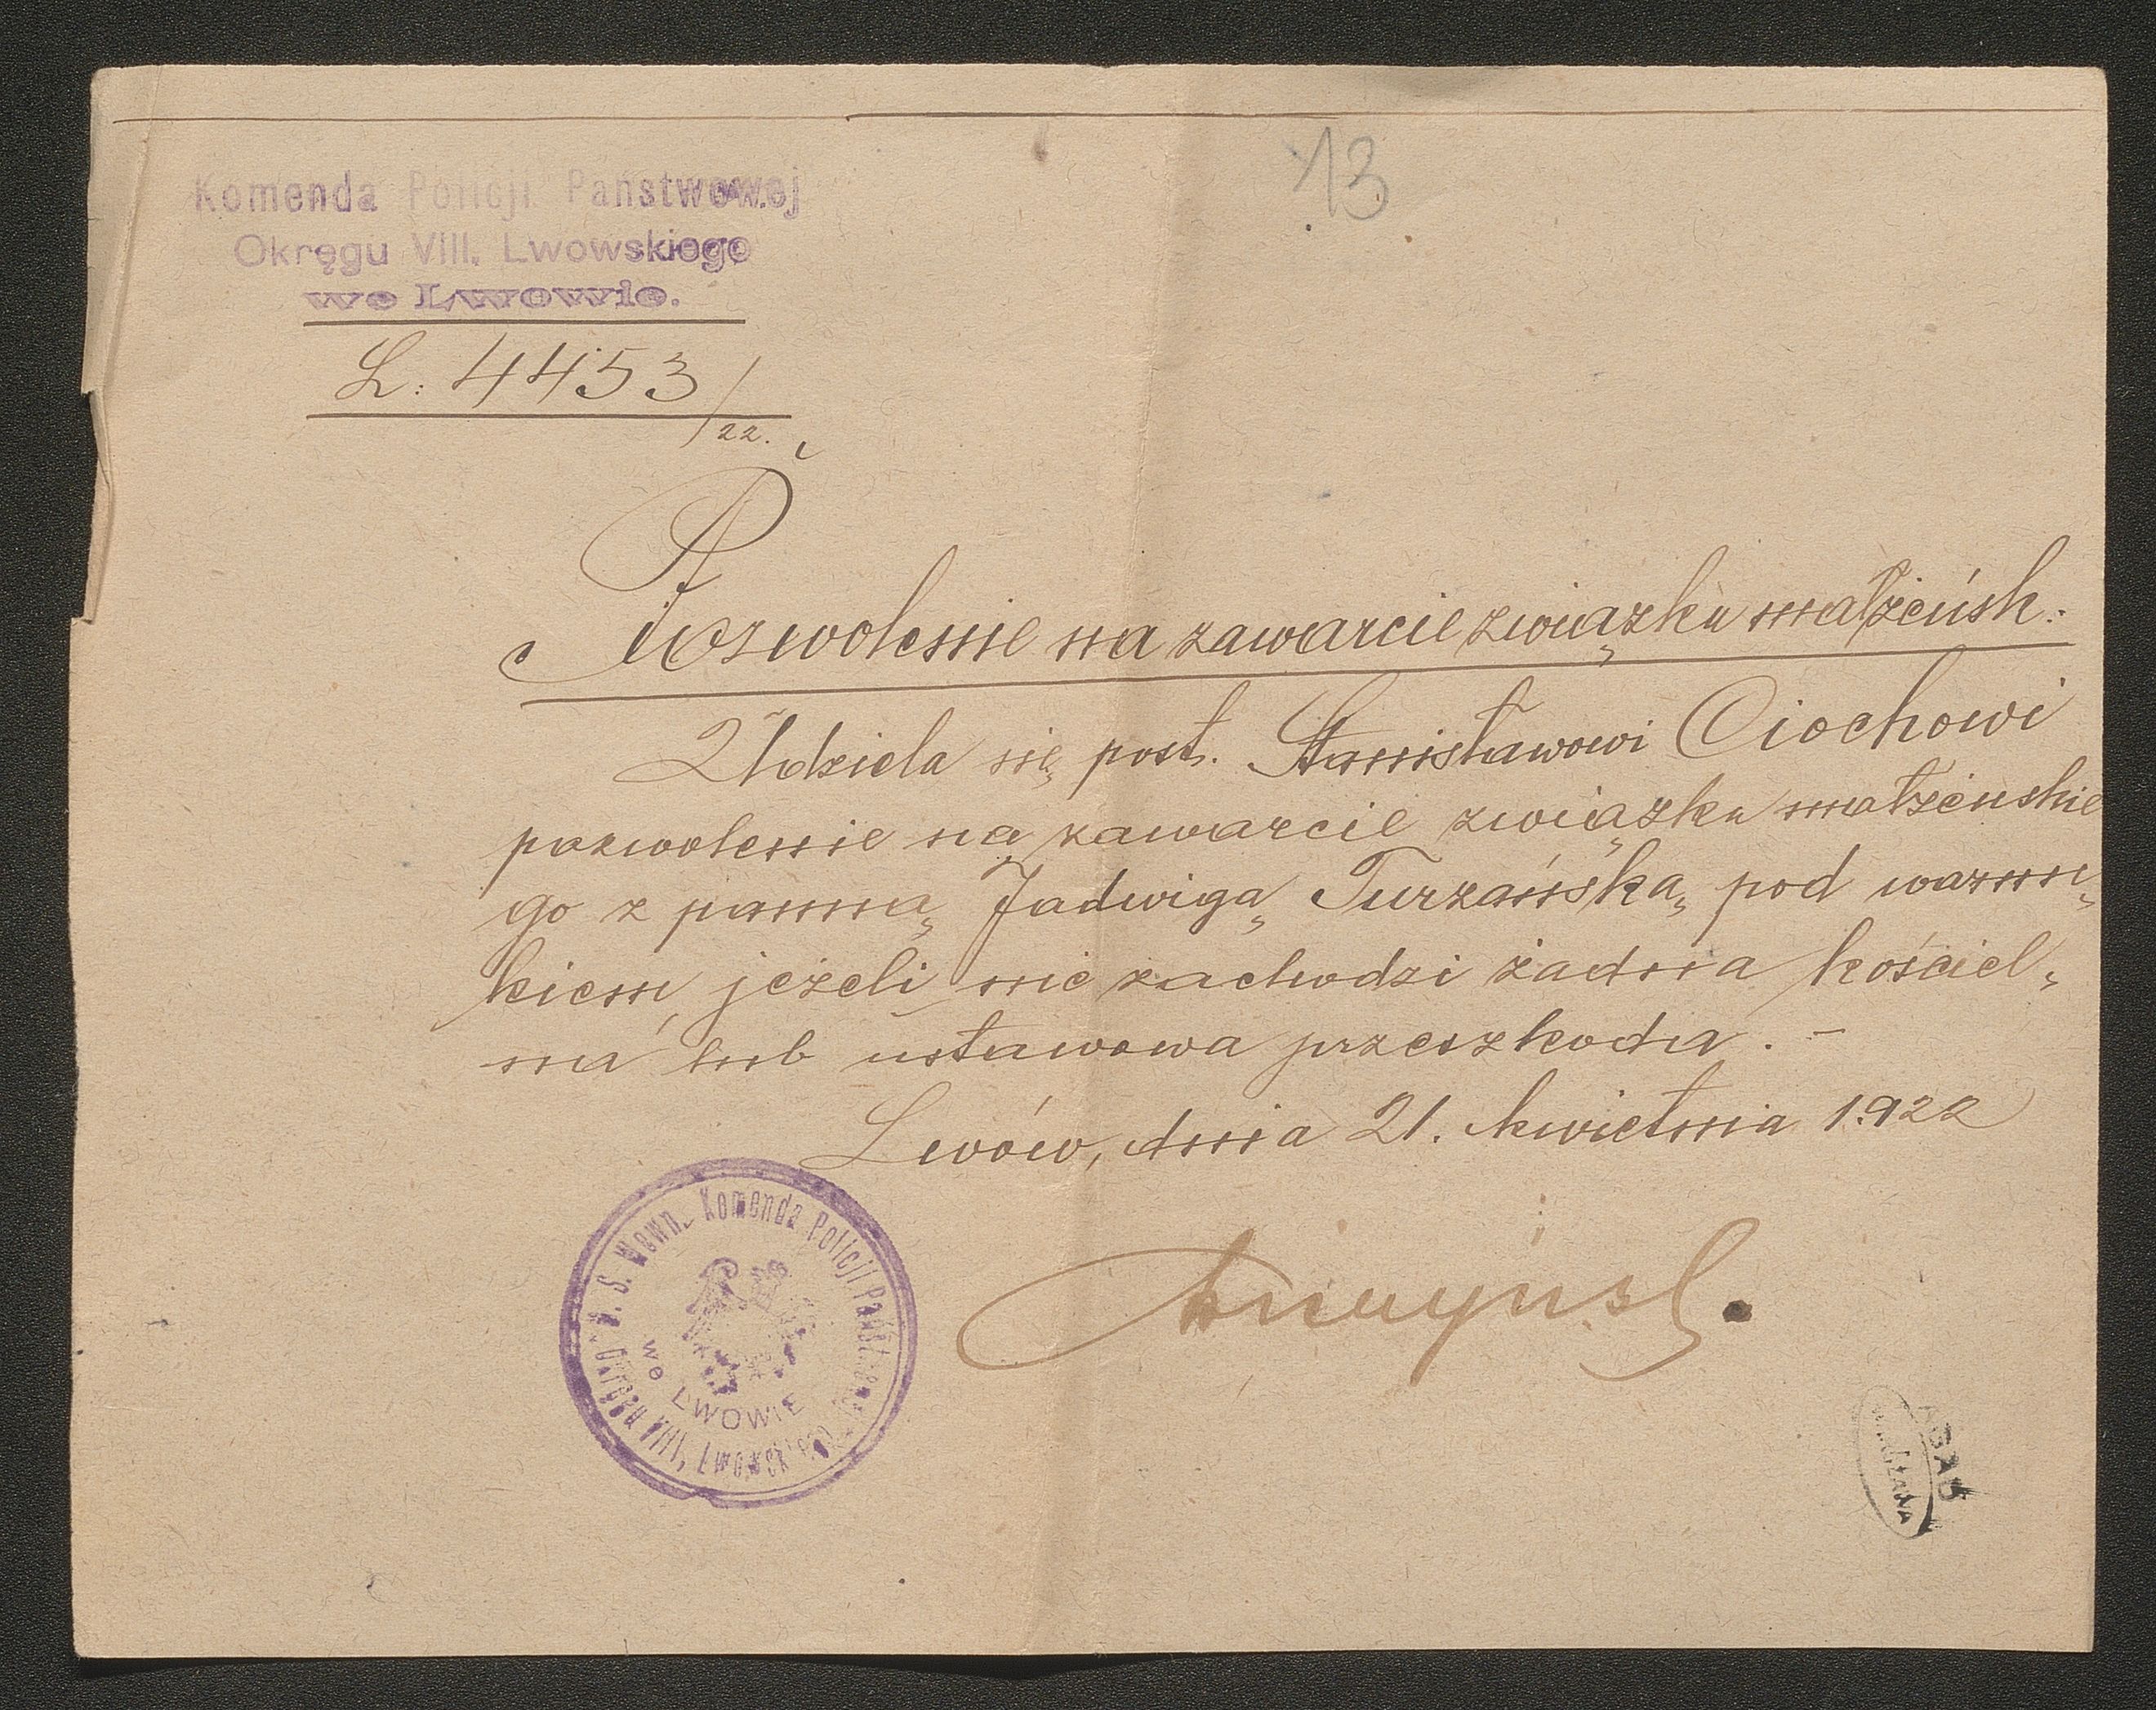 13
Komenda Policji Państwowej
Okręgu VIII. Lwowskiego
we Lwowie.
L: 4453/22.
Pozwolenie na zawarcie związku małżeńsk:
Udziela się post. Stanisławowi Ciochowi
pozwolenie na zawarcie związku małżeńskie
go z panną Jadwigą Turzańską pod warun„
kiem, jeżeli nie zachodzi żadna kościel„
na lub ustawowa przeszkoda. –
Lwów, dnia 21. kwietnia 1922
S. Wewn. Komenda Policji Państwowej
Okręgu VIII, Lwowskiego
we LWOWIE
AGAD
WARSZAWA